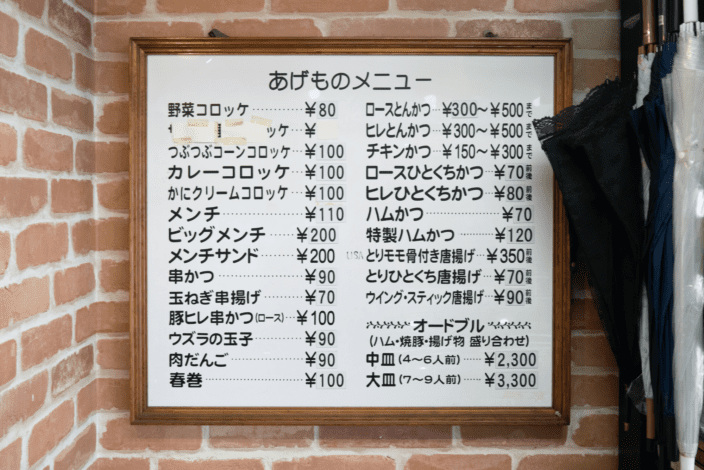 あげものメニュー
野菜コロッケ………¥80
ッケ…¥
つぶつぶコーンコロッケ…¥100
カレーコロッケ……¥100
かにクリームコロッケ…¥100
メンチ………………¥110
ビッグメンチ………¥200
メンチサンド………¥200
串かつ………………¥90
玉ねぎ串揚げ………¥70
豚ヒレ串かつ(ロース)…¥100
ウズラの玉子………¥90
肉だんご……………¥90
春巻…………………¥100
ロースとんかつ…¥300〜¥500まで
ヒレとんかつ…¥300〜¥500まで
チキンかつ…¥150〜¥300まで
ロースひとくちかつ…¥70前後
ヒレひとくちかつ…¥80前後
ハムかつ……………¥70
特製ハムかつ………¥120
USA とりモモ骨付き唐揚げ…¥350前後
とりひとくち唐揚げ…¥70前後
ウイング・スティック唐揚げ…¥90前後
オードブル
(ハム・焼豚・揚げ物 盛り合わせ)
中皿(4〜6人前)……¥2,300
大皿(7〜9人前)……¥3,300